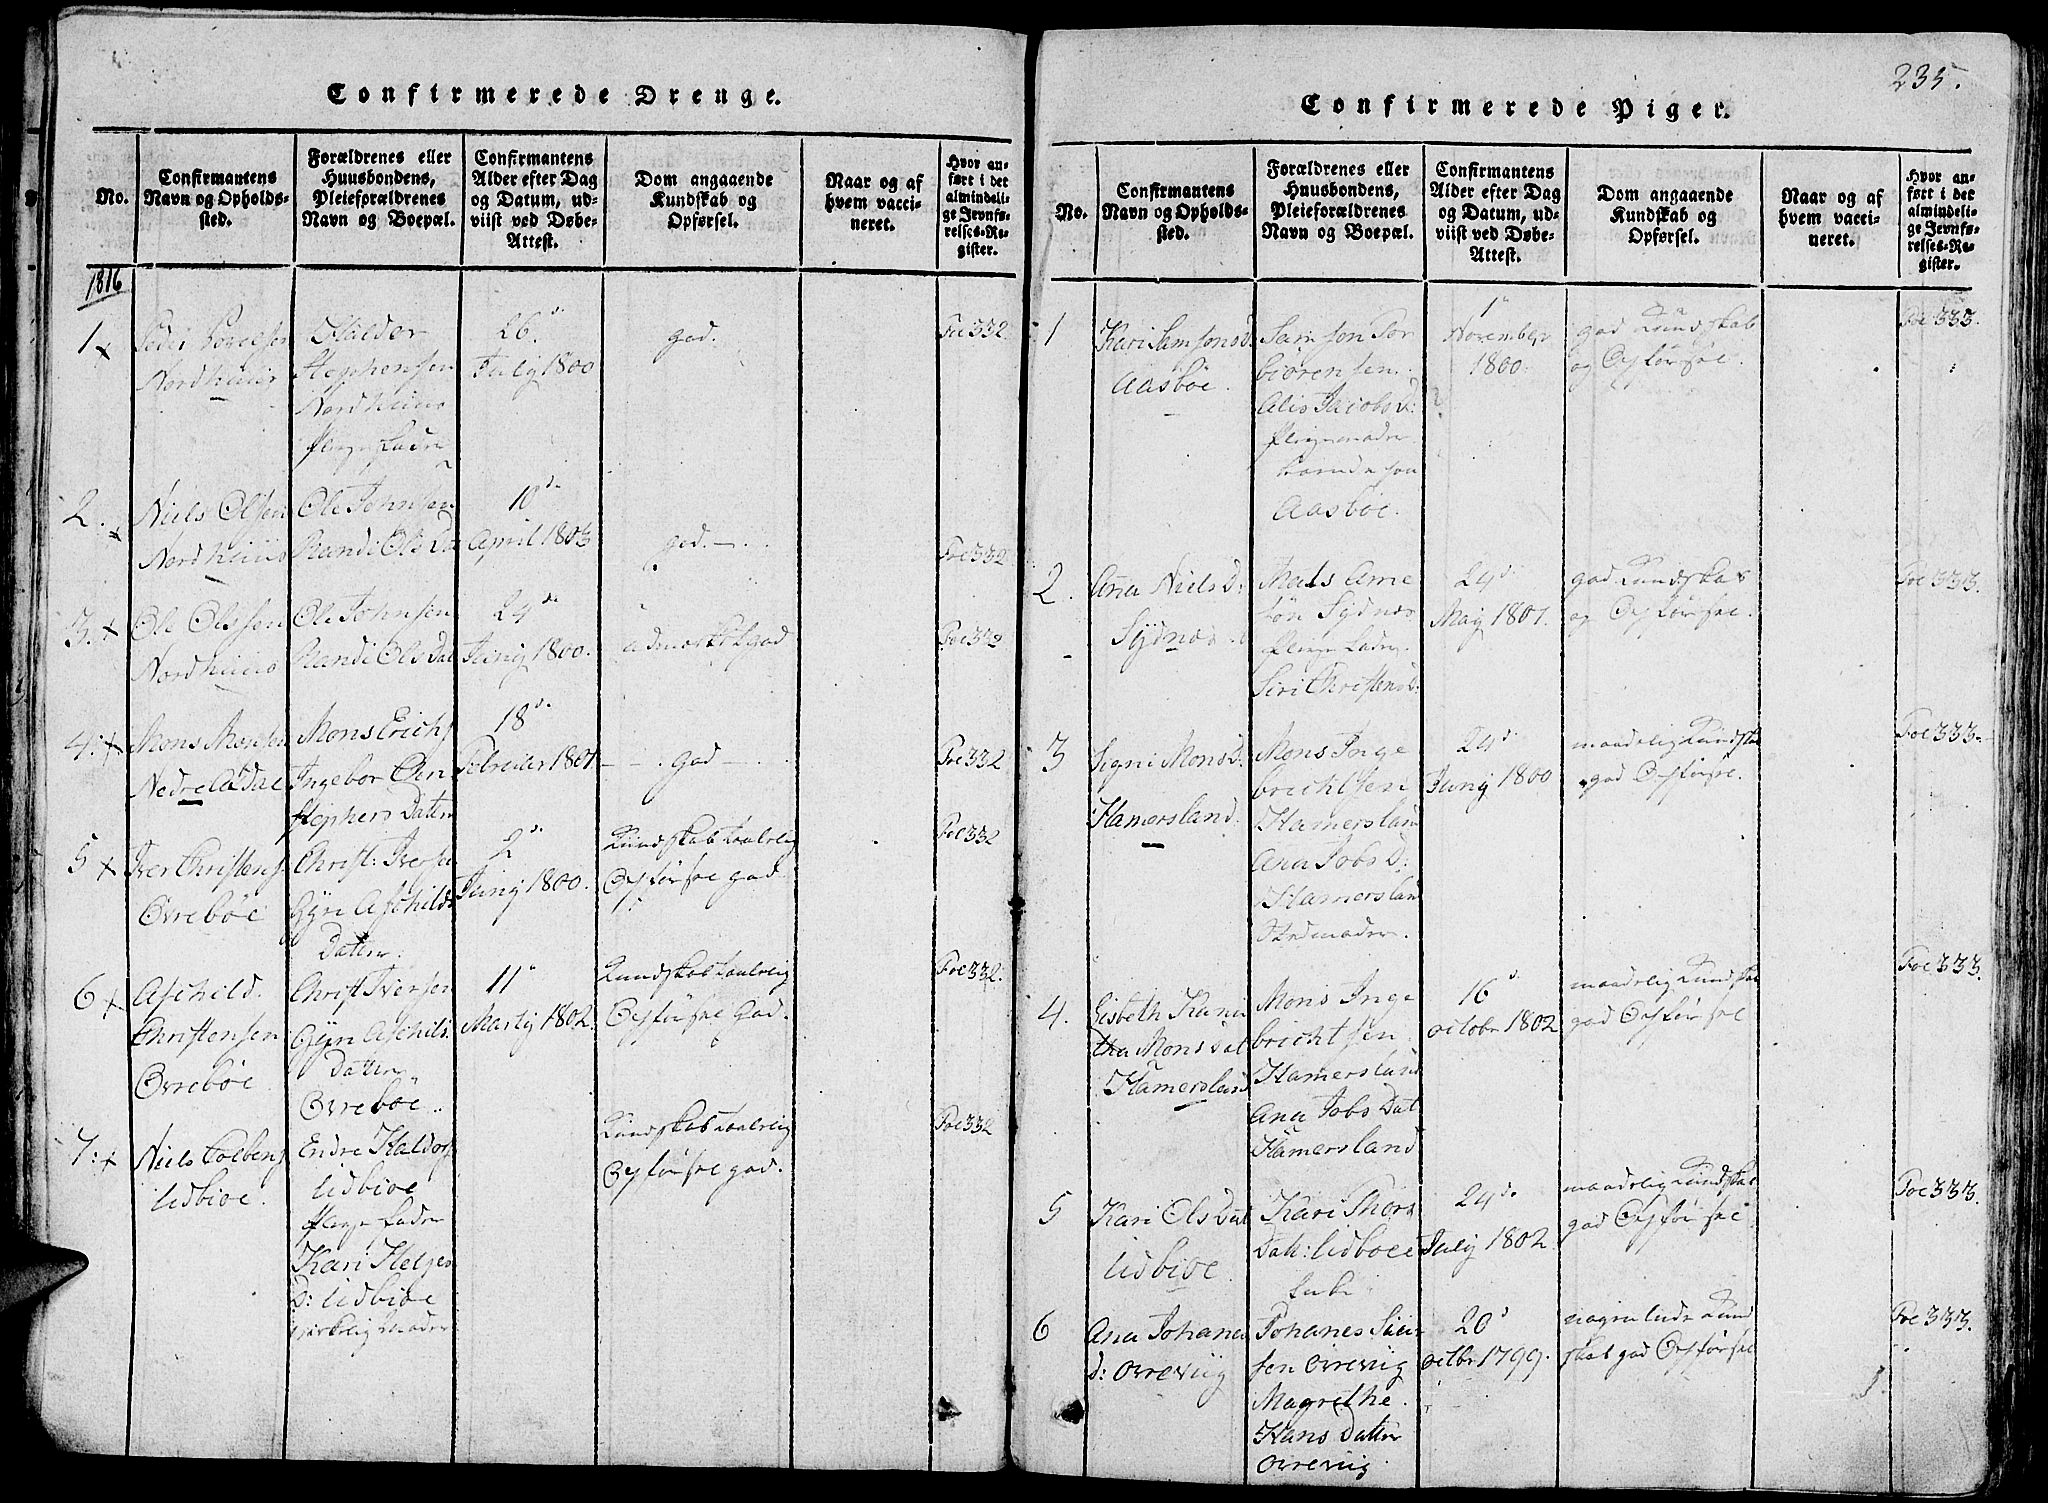 235.
Confirmerede Drenge.
No.
Confirmantens
Navn og Opholds-
sted.
Forældrenes eller
Huusbondens,
Pleieforældrenes
Navn og Boepæl.
Confirmantens
Alder efter Dag
og Datum, ud-
viist ved Døbe-
Attest.
Dom angaaende
Kundskab og
Opførsel.
Naar og af
hvem vacci-
neret.
Hvor an-
ført i det
almindeli-
ge Jevnfø-
relses-Re-
gister.
1816
1
Nordhuus
Halder
Stephensen
Nordhuus
26
July 1800
god.
Foe 332
2.
Niels Olsen
Nordhuus
Ole Johnsen
Randi Ols Da
10
April 1803
god.
Foe 332
3.
Ole Olssen
Nordhuus
Ole Johnsen
Randi Ols Dat
24 de
Junij 1800.
Foe 332
4:
Mons Monsen
Nedre
Mons Erichs
Ingebor
Stephens Datter
18 d.
Februier 1801.
God
Foe 332
5
Iver Christens
Ovrebøe
Christ: Iversen
Gÿri Aschilds
Datter.
2 d
Junij 1800.
Kundskab
Opførsel god
Foe 332
6
Aschild.
Christensen
Ovrebøe
Christ Iversen
Gÿri Aschils
Datter
Ovrebøe.
11
Martij 1802.
Kundskab
Opførsel God.
Foe 332.
7:
Niels
Udbiøe.
Endre Haldors
Udbiøe
Kari Helges
D: Udbiøe
Kundskab
Opførsel god.
Foe 332
Confirmerede Piger.
No.
Confirmantens
Navn og Opholds-
sted.
Forældrenes eller
Huusbondens,
Pleieforældrenes
Navn og Boepæl.
Confirmantens
Alder efter Dag
og Datum, ud-
viist ved Døbe-
Attest.
Dom angaaende
Kundskab og
Opførsel.
Naar og af
hvem vacci-
neret.
Hvor an-
ført i det
almindeli-
ge Jevnfø-
relses-Re-
gister.
1
Kari Samsons D
Aasbøe.
Samson Tor
biørensen.
Alis Jacobs D:
Aasbøe.
1
November
1800.
god Kundskab
og Opførsel.
Foe 333.
2.
Ana Niels D:
Sÿdnes
Sÿdnes
Siri Christens D:
24 d.
Maij 1801.
god Kundskab
og Opførsel.
Foe 333.
3
Signi Mons D.
Hamersland.
Mons Inge
brichtsen
Hamersland
Ana Jobs D:
Hamersland
Stedmoder.
24 d
Junij 1800
maadelig Kundskab
god Opførsel.
Foe 333.
4.
Lisbeth
tha Mons Dat
Hamersland
Mons Inge
brichtsen
Hamersland
Ana Jobs Dat
Hamersland
16 d.
octobr 1802
maadelig Kundskab
god Opførsel
Foe 333.
5
Kari Ols Dat
Udbiøe.
Kari Thors
Dat: Udbøe
24 d.
Julij 1802.
maadelig Kundskab
god Opførsel
Foe 333.
6
Ana Johanes
d: ovrevig
Johanes
sen ovrevig
Magrethe.
Hans Datter
ovrevig
20 d
octbr 1799.
Kund
skab god Opførsel
Foe 333.